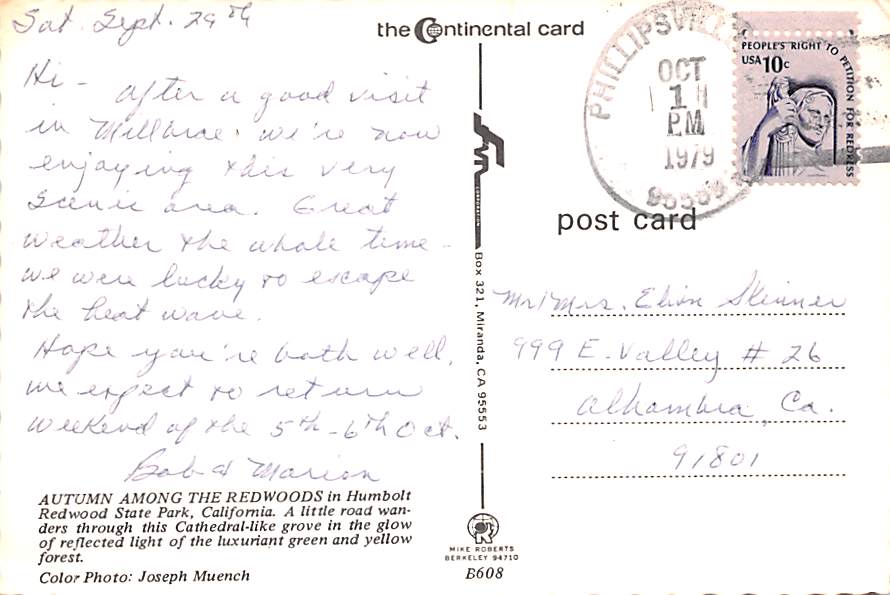 Sat. Sept. 29th
Hi - after a good visit
in Millbrae. we're now
enjoying this very
scenic area. Great
weather the whole time -
we were lucky to escape
the heat wave.
Hope you're both well.
we expect to return
weekend of the 5th - 6th Oct.
Bob & Marion
AUTUMN AMONG THE REDWOODS in Humbolt
Redwood State Park, California. A little road wan-
ders through this Cathedral-like grove in the glow
of reflected light of the luxuriant green and yellow
forest.
Color Photo: Joseph Muench
the Continental card
SMR
CORPORATION
Box 321, Miranda, CA 95553
MIKE ROBERTS
BERKELEY 94710
B608
PHILLIPSVILLE
OCT
1
PM
1979
PEOPLE'S RIGHT TO PETITION FOR REDRESS
USA 10c
post card
Mr/Mrs. Skinner
999 E. Valley # 26
Alhambra, Ca.
91801